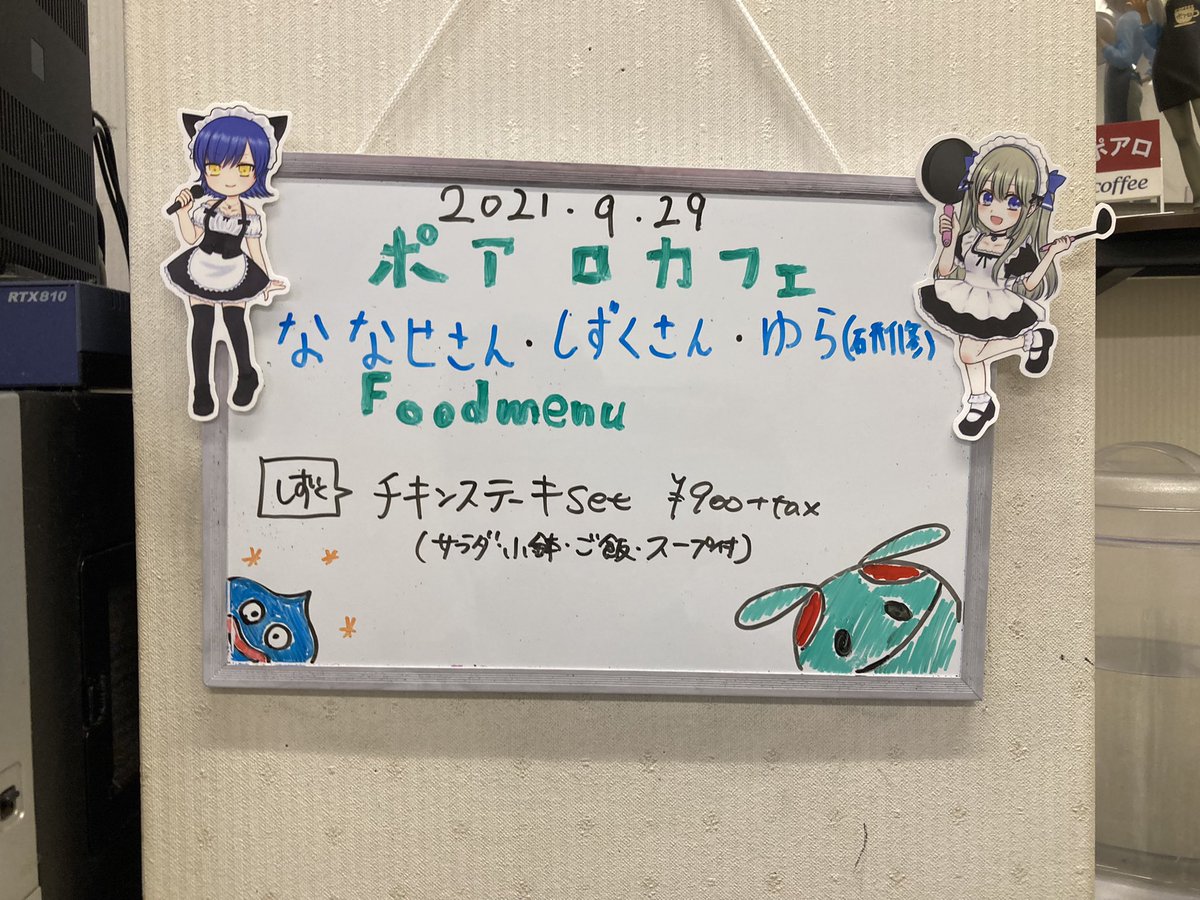 2021.9.29
ポアロカフェ
ななせさん・しずくさん・ゆら(研修)
Foodmenu
チキンステーキset ¥900+tax
(サラダ・小鉢・ご飯・スープ付)
RTX810
ポアロ
coffee